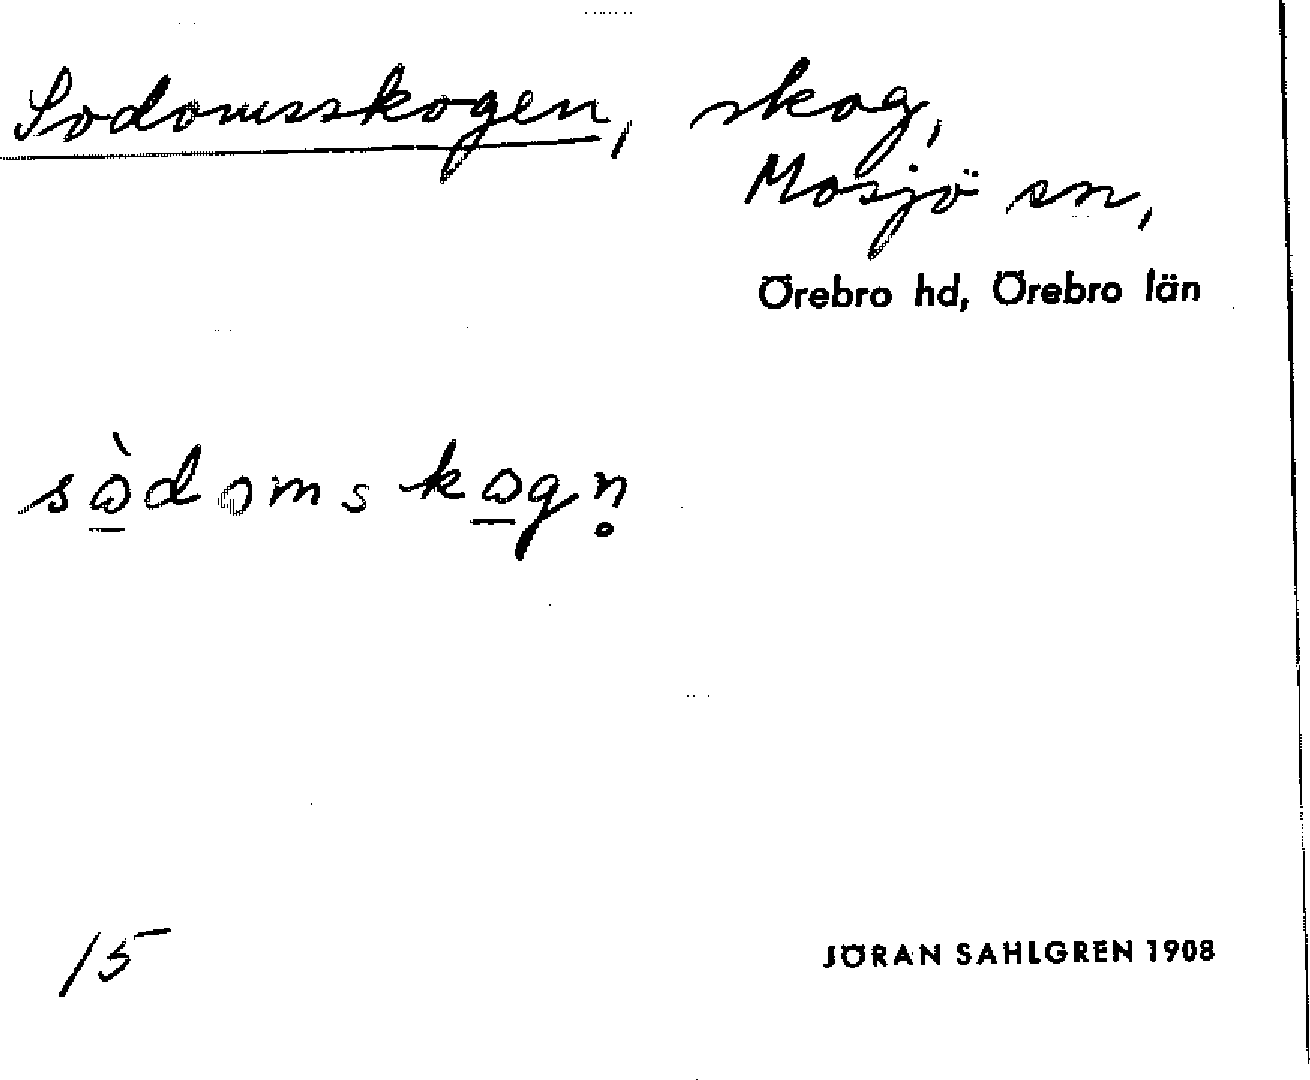 Sodomsskogen, skog,
Mosjö sn,
Örebro hd, Örebro län
sò̠domsko̠gn̥
15
JÖRAN SAHLGREN 1908